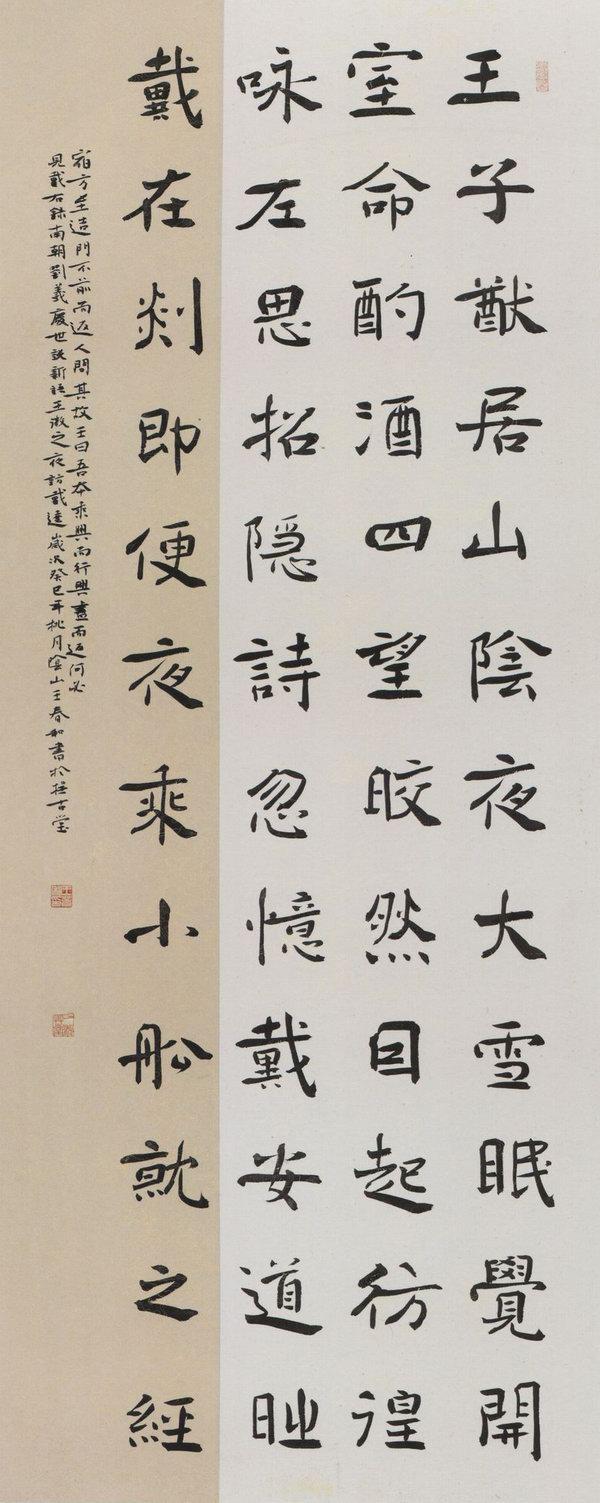 王子猷居山陰夜大雪眠覺開
室命酌酒四望皎然因起彷徨
咏左思招隐詩忽憶戴安道時
戴在剡即便夜乘小船就之經
宿方至造門不前而返人問其故王曰吾本乘興而行興盡而返何必
見戴右錄南朝劉義慶世説新語王徽之夜訪戴逵歲次癸巳年桃月陰山王春和書於拄古堂